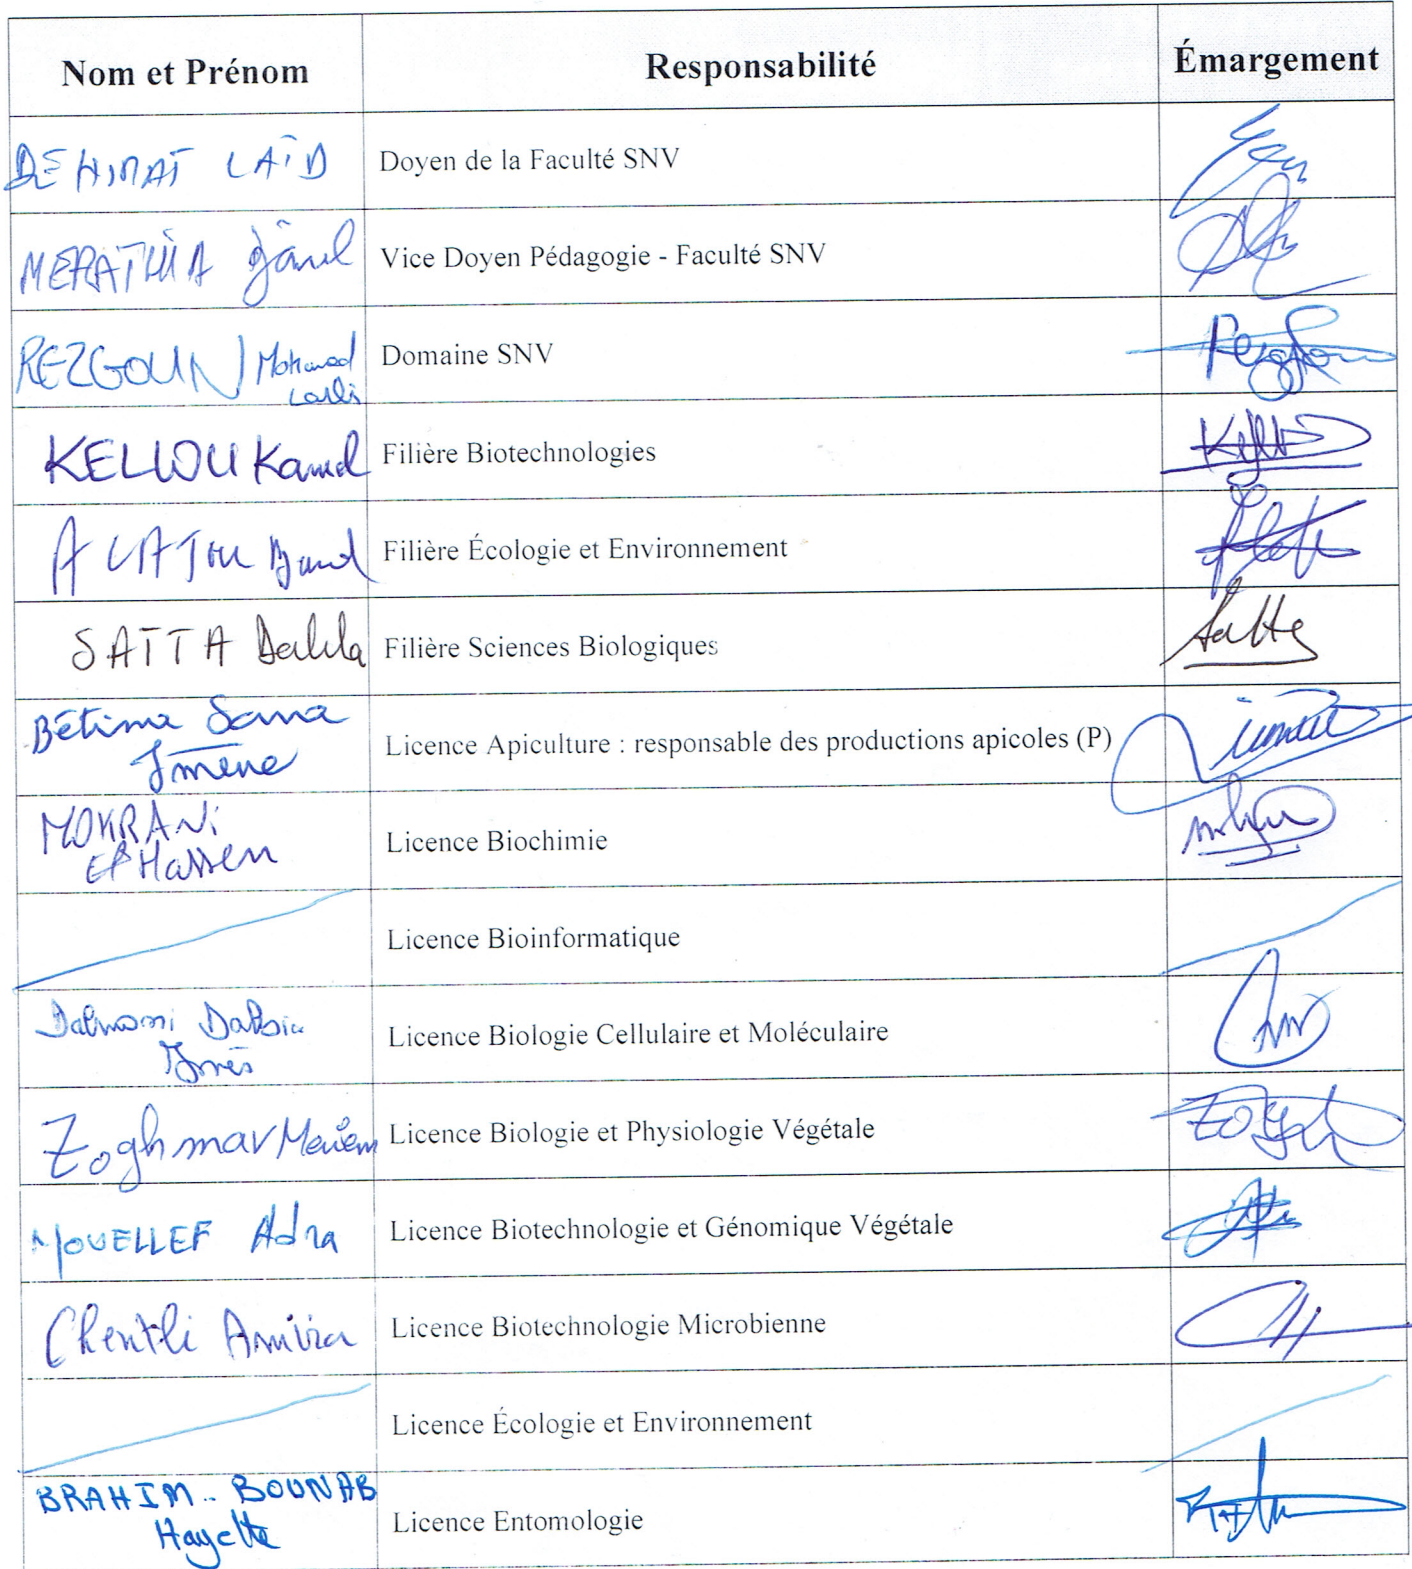 Nom et Prénom Responsabilité Émargement
DEHIMAT LAÏD Doyen de la Faculté SNV
MERATHIA Djamel Vice Doyen Pédagogie - Faculté SNV
REZGOUN Mohamed Larbi Domaine SNV
KELLOU Kamel Filière Biotechnologies
ALATOU Djamel Filière Écologie et Environnement
SATTA Dalila Filière Sciences Biologiques
Bétima Sana Imène Licence Apiculture : responsable des productions apicoles (P)
MOKRANI El Hassen Licence Biochimie
Licence Bioinformatique
Inès Licence Biologie Cellulaire et Moléculaire
Zoghmar Meriem Licence Biologie et Physiologie Végétale
MOUELLEF Adra Licence Biotechnologie et Génomique Végétale
Chentli Amira Licence Biotechnologie Microbienne
Licence Écologie et Environnement
BRAHIM-BOUNAB Hayette Licence Entomologie